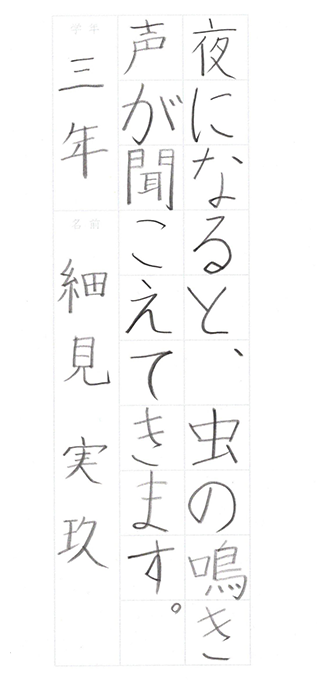 夜になると、虫の鳴き
声が聞こえてきます。
学年
三年
名前
細見 実玖